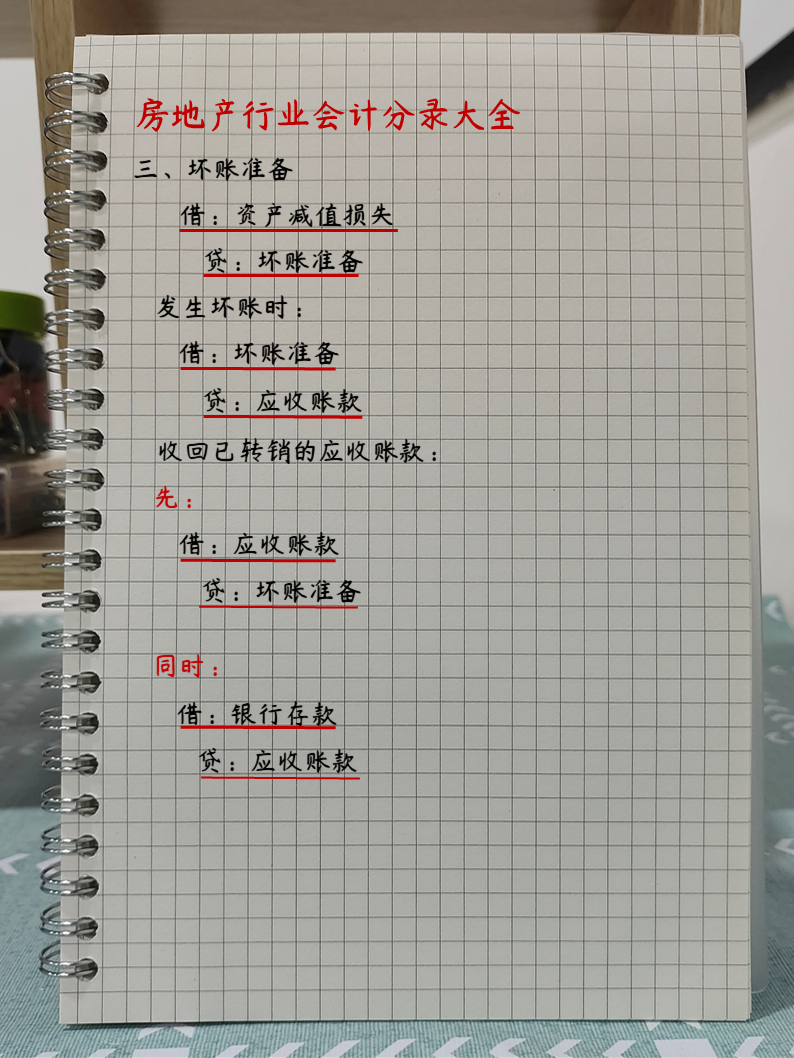 房地产行业会计分录大全
三、坏账准备
借：资产减值损失
贷：坏账准备
发生坏账时：
借：坏账准备
贷：应收账款
收回已转销的应收账款：
先：
借：应收账款
贷：坏账准备
同时：
借：银行存款
贷：应收账款